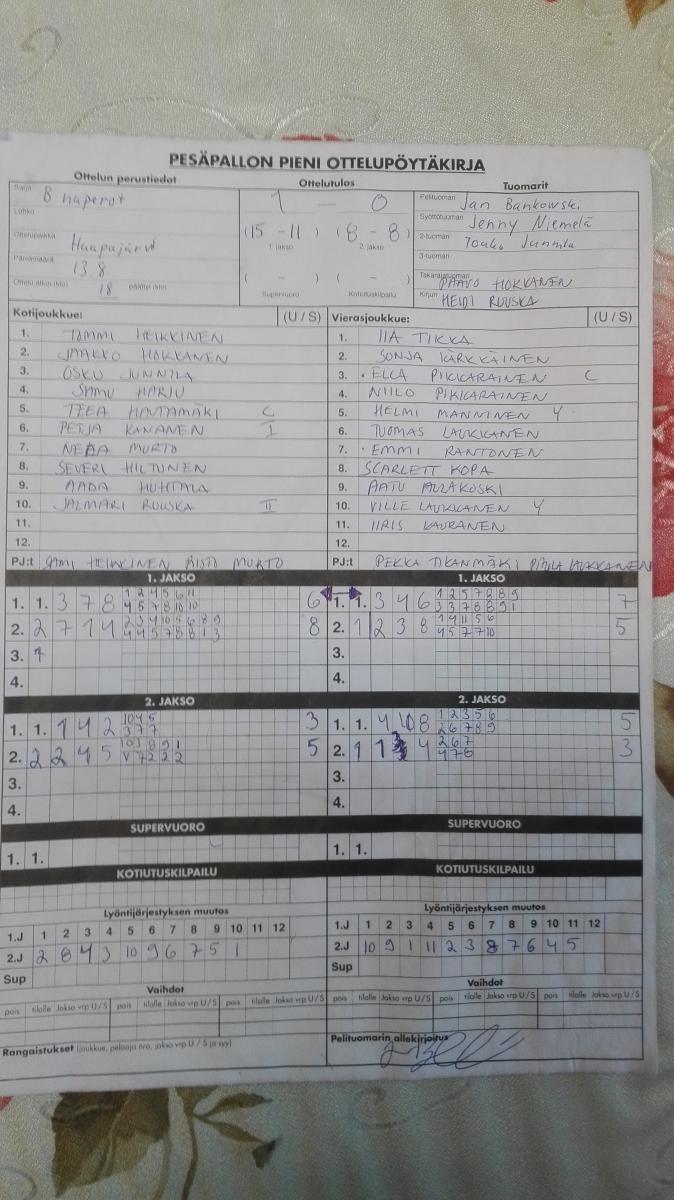 PESÄPALLON PIENI OTTELUPÖYTÄKIRJA
Ottelun perustiedot
Ottelutulos
Tuomarit
Sarja 8 naperot
1 — 0
Pelituomari Jan Bankowski
Lohko
Syöttötuomari Jenny Niemelä
(15 - 11) (8 - 8)
1. jakso 2. jakso
Ottelupaikka Haapajärvi
2-tuomari Touko Junnila
3-tuomari
Päivämäärä 13.8
( - ) ( - )
Takarajatuomari PAAVO HOKKANEN
Ottelu alkoi (klo) 18 päättyi (klo)
Supervuoro Kotiutuskilpailu
Kirjuri HEIDI RUUSKA
Kotijoukkue: (U / S)
Vierasjoukkue: (U / S)
1. TOMMI HEIKKINEN
1. IIA TIKKA
2. JAAKKO HOKKANEN
2. SONJA KÄRKKÄINEN
3. OSKU JUNNILA
3. ELLA PIKKARAINEN C
4. SAMU HARJU
4. NIILO PIKKARAINEN
5. TEEA HAUTAMÄKI C
5. HELMI MANNINEN Y
6. PETJA KANANEN I
6. TUOMAS LAUKKANEN
7. NEEA MURTO
7. EMMI RANTONEN
8. SEVERI HILTUNEN
8. SCARLETT KOPA
9. AADA HUHTALA
9. AATU AULAKOSKI
10. JALMARI RUUSKA II
10. VILLE LAUKKANEN Y
11.
11. IIRIS KAURANEN
12.
12.
PJ:t SAMI HEIKKINEN RISTO MURTO
PJ:t PEKKA TIKANMÄKI PAULA LAUKKANEN
1. JAKSO
1. JAKSO
1. 1. 3 7 8 1 2 4 5 6 11 6
4 5 7 8 10 10
1. 1. 3 4 6 1 2 5 7 8 8 9 7
3 3 7 8 8 9 1
2. 2 7 1 4 2 3 4 10 5 6 8 9 8
4 4 5 7 8 8 1 3
2. 1 2 3 8 1 4 11 5 6 5
4 5 7 7 10
3. 1
3.
4.
4.
2. JAKSO
2. JAKSO
1. 1. 1 4 2 10 4 5 3
3 7 7
1. 1. 4 10 8 1 2 3 5 6 5
2 6 7 8 9
2. 2 2 4 5 10 3 8 9 1 5
V 7 2 2 2
2. 1 1 3 4 2 6 7 3
4 7 8
3.
3.
4.
4.
SUPERVUORO
SUPERVUORO
1. 1.
1. 1.
KOTIUTUSKILPAILU
KOTIUTUSKILPAILU
Lyöntijärjestyksen muutos
Lyöntijärjestyksen muutos
1.J 1 2 3 4 5 6 7 8 9 10 11 12
1.J 1 2 3 4 5 6 7 8 9 10 11 12
2.J 2 8 4 3 10 9 6 7 5 1
2.J 10 9 1 11 2 3 8 7 6 4 5
Sup
Sup
Vaihdot
Vaihdot
pois tilalle Jakso vrp U / S pois tilalle Jakso vrp U / S pois tilalle Jakso vrp U / S
pois tilalle Jakso vrp U / S pois tilalle Jakso vrp U / S pois tilalle Jakso vrp U / S
Rangaistukset (joukkue, pelaaja nro, jakso vrp U / S ja syy)
Pelituomarin allekirjoitus